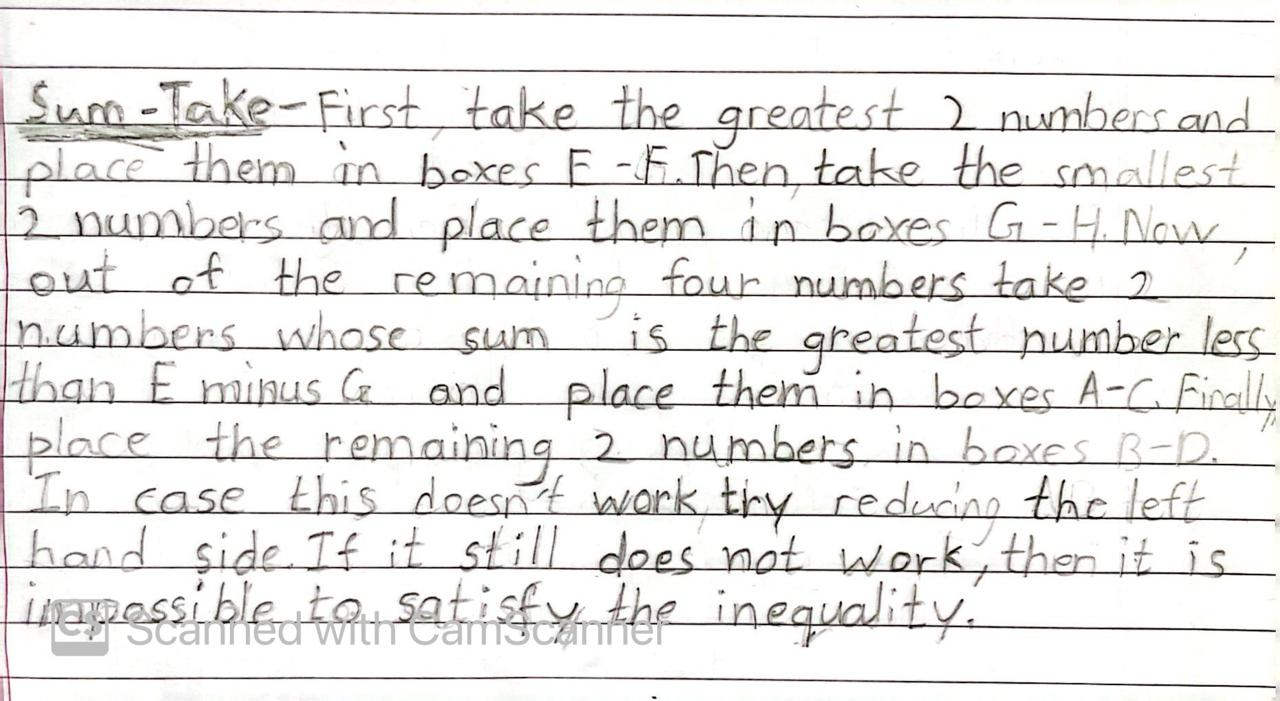 Sum-Take-First, take the greatest 2 numbers and
place them in boxes E-F. Then, take the smallest
2 numbers and place them in boxes G-H. Now,
out of the remaining four numbers take 2
numbers whose sum is the greatest number less
than E minus G and place them in boxes A-C. Finally,
place the remaining 2 numbers in boxes B-D.
In case this doesn't work, try reducing the left
hand side. If it still does not work, then it is
impossible to satisfy the inequality.
CS Scanned with CamScanner